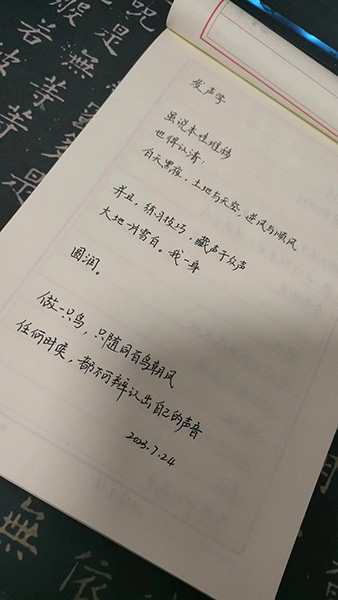 呪
是無等等
般若波
多
是
发声学
虽说本性难移
也得认清：
白天黑夜，土地与天空，逆风与顺风
并且，练习技巧，藏声于众声
大地一片雪白。我一身
圆润。
做一只鸟，只随同百鸟朝凤
任何时候，都不可辨认出自己的声音
2023.7.24
無
依